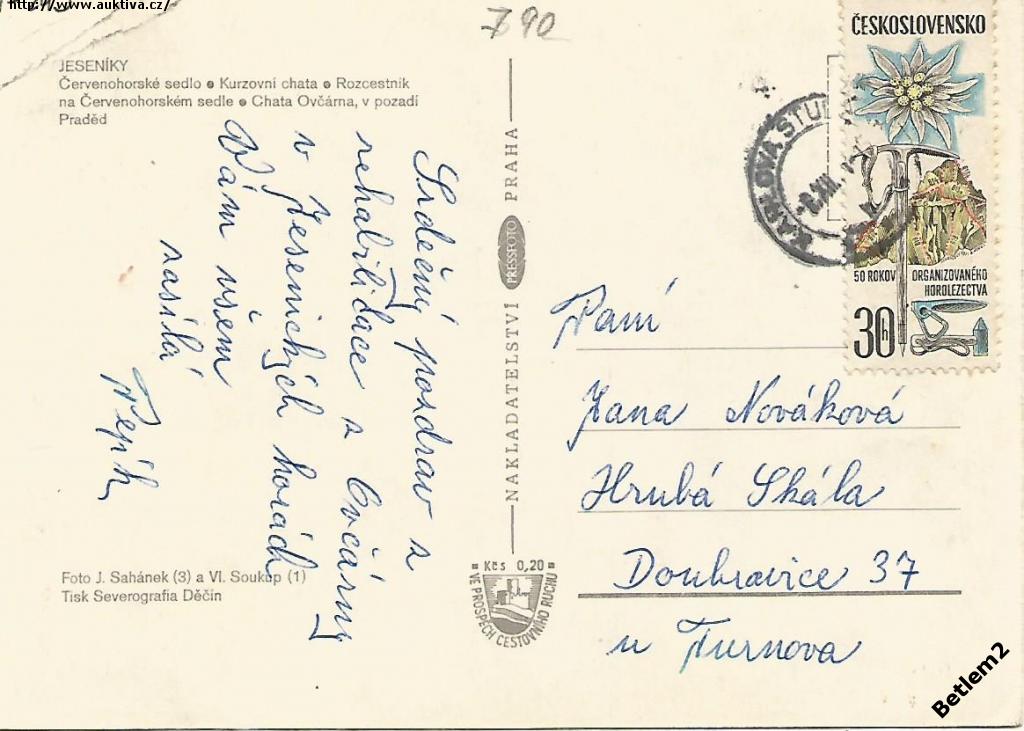 http://www.auktiva.cz/
790
JESENÍKY
Červenohorské sedlo • Kurzovní chata • Rozcestník
na Červenohorském sedle • Chata Ovčárna, v pozadí
Praděd
Srdečný pozdrav z
rehabilitace z Ovčárny
v Jesenických horách
Vám všem
zasílá
Pepík
Foto J. Sahánek (3) a Vl. Soukup (1)
Tisk Severografia Děčín
NAKLADATELSTVÍ PRESSFOTO PRAHA
Kčs 0,20
VE PROSPĚCH CESTOVNÍHO RUCHU
ČESKOSLOVENSKO
50 ROKOV ORGANIZOVANÉHO
HOROLEZECTVA
30h
Paní
Jana Nováková
Hrubá Skála
Doubravice 37
u Turnova
Betlem2